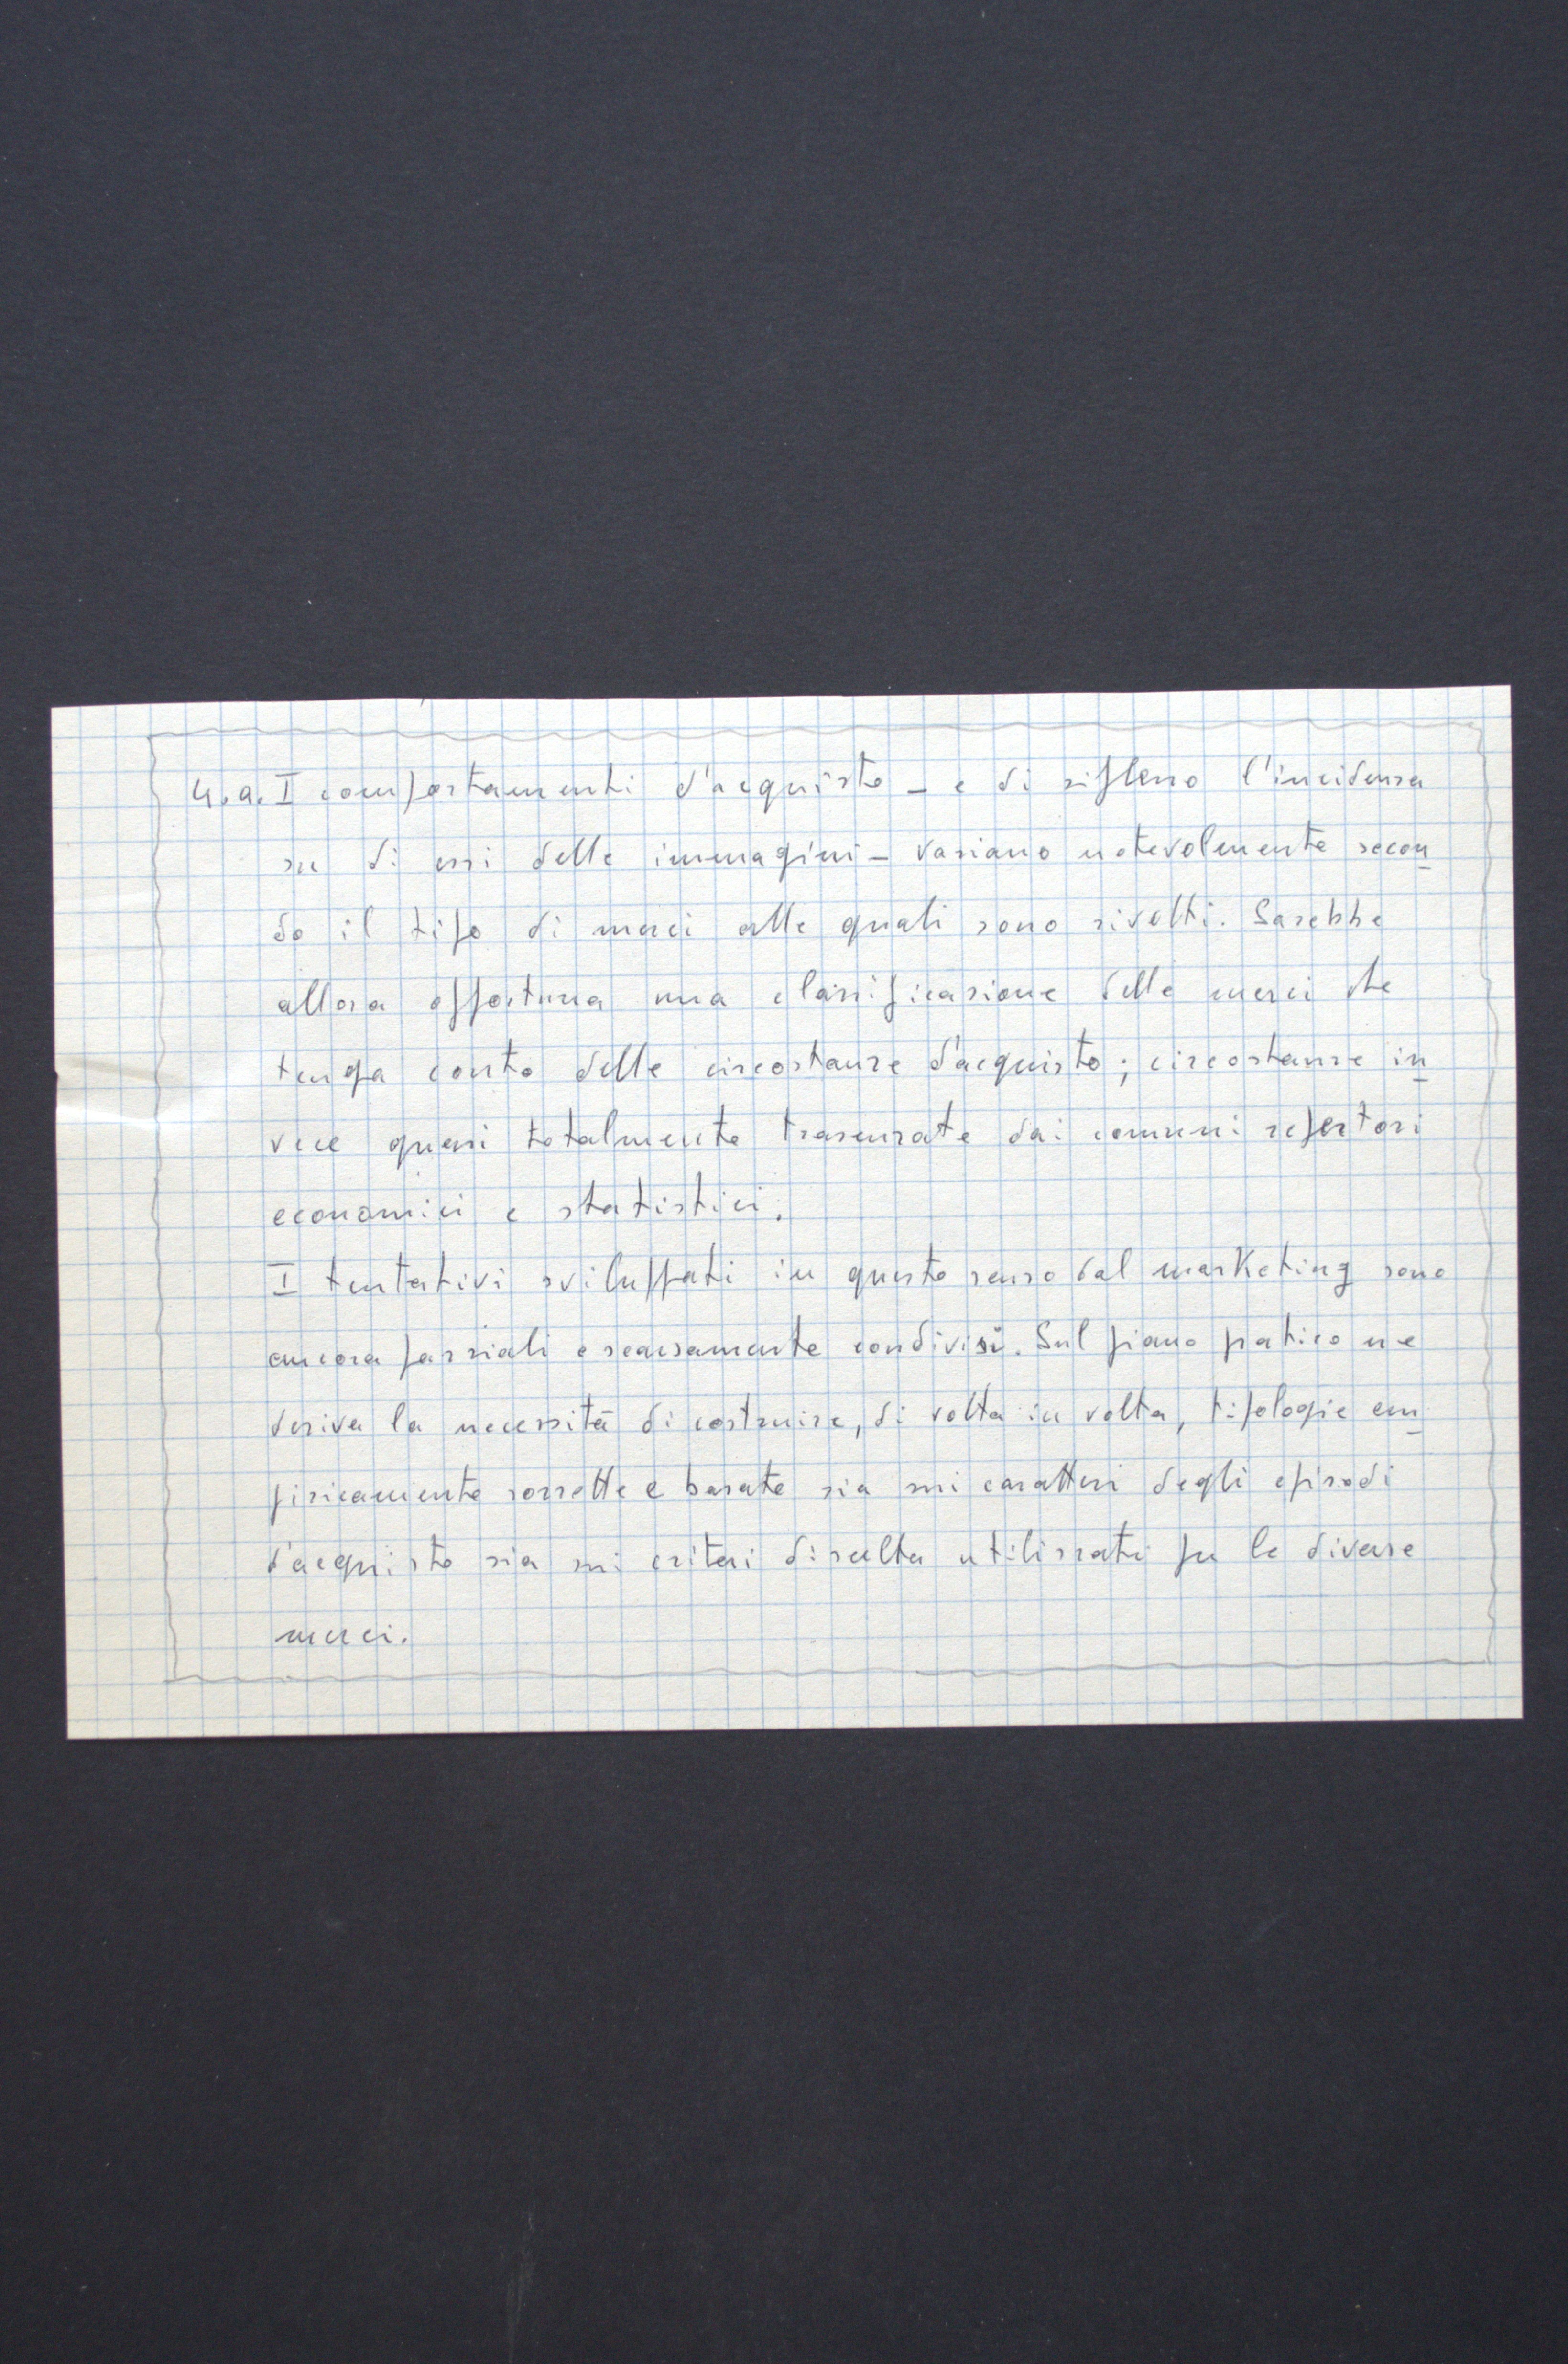 4.a. I comportamenti d'acquisto _ e di riflesso l'incidenza
su di essi delle immagini _ variano notevolmente secon
do il tipo di merci alle quali sono rivolti. Sarebbe
allora opportuna una classificazione delle merci che
tenga conto delle circostanze d'acquisto; circostanze in
vece quasi totalmente trascurate dai comuni repertori
economici e statistici.
I tentativi sviluppati in questo senso dal marketing sono
ancora parziali e scarsamente condivisi. Sul piano pratico ne
deriva la necessità di costruire, di volta in volta, tipologie em
piricamente sorrette e basate sia sui caratteri degli episodi
d'acquisto sia sui criteri di scelta utilizzati per le diverse
merci.